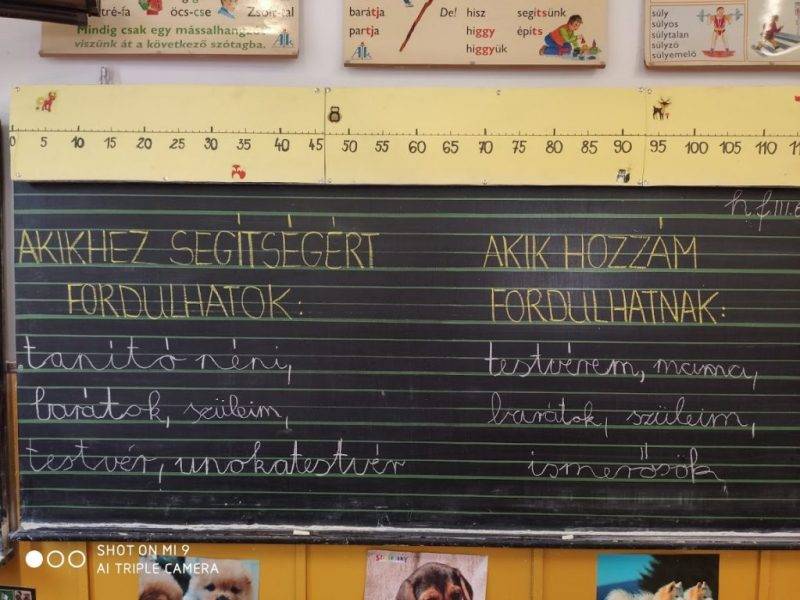 tré-fa öcs-cse Zsolt-tal
Mindig csak egy mássalhangzót
viszünk át a következő szótagba.
barátja De! hisz segítsünk
partja higgy építs
higgyük
súly
súlyos
súlytalan
súlyzó
súlyemelő
0 5 10 15 20 25 30 35 40 45 50 55 60 65 70 75 80 85 90 95 100 105 110
h f III.
AKIKHEZ SEGÍTSÉGÉRT
FORDULHATOK:
tanító néni,
barátok, szüleim,
testvér, unokatestvér
AKIK HOZZÁM
FORDULHATNAK:
testvérem, mama,
barátok, szüleim,
ismerősök
SHOT ON MI 9
AI TRIPLE CAMERA